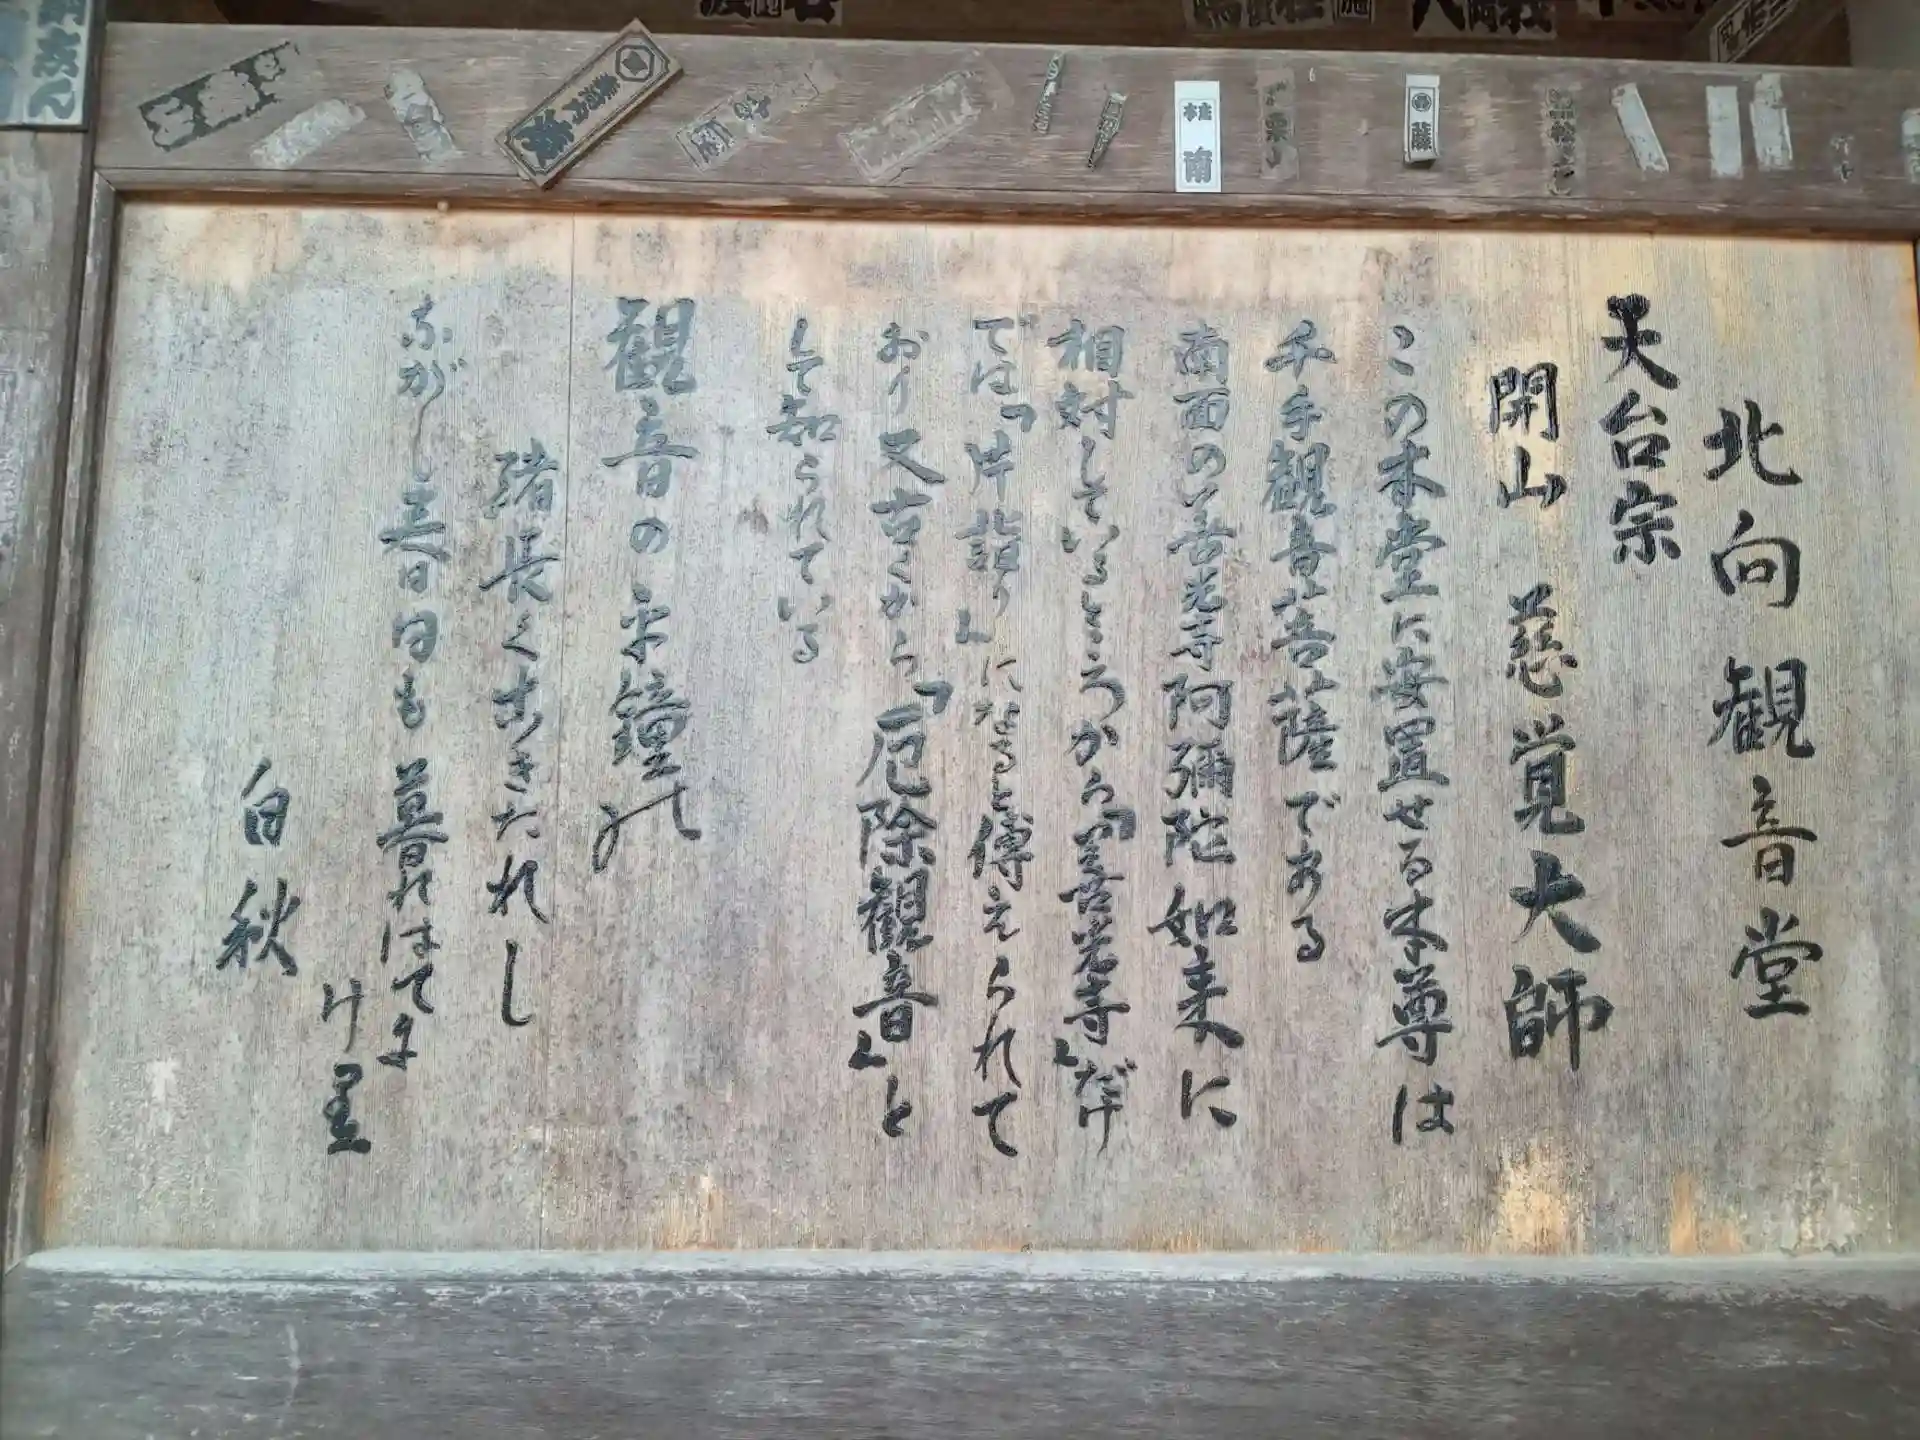 北向観音堂
天台宗
開山 慈覚大師
この本堂に安置せる本尊は
千手観音菩薩である
南面の善光寺阿彌陀如来に
相対しているところから「善光寺」だけ
では「片詣り」になると傳えられて
おり又古くから「厄除観音」と
して知られている
観音の
緒長く
ながし春日も暮れはてに
けり
白秋